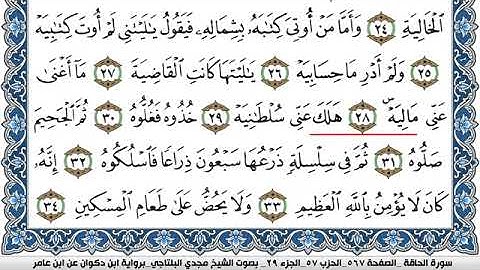 ٱلْخَالِيَةِ ٢٤ وَأَمَّا مَنْ أُوتِىَ كِتَـٰبَهُۥ بِشِمَالِهِۦ فَيَقُولُ يَـٰلَيْتَنِى لَمْ أُوتَ كِتَـٰبِيَهْ
٢٥ وَلَمْ أَدْرِ مَا حِسَابِيَهْ ٢٦ يَـٰلَيْتَهَا كَانَتِ ٱلْقَاضِيَةَ ٢٧ مَآ أَغْنَىٰ
عَنِّى مَالِيَهْۜ ٢٨ هَلَكَ عَنِّى سُلْطَـٰنِيَهْ ٢٩ خُذُوهُ فَغُلُّوهُ ٣٠ ثُمَّ ٱلْجَحِيمَ
صَلُّوهُ ٣١ ثُمَّ فِى سِلْسِلَةٍ ذَرْعُهَا سَبْعُونَ ذِرَاعًا فَٱسْلُكُوهُ ٣٢ إِنَّهُۥ
كَانَ لَا يُؤْمِنُ بِٱللَّهِ ٱلْعَظِيمِ ٣٣ وَلَا يَحُضُّ عَلَىٰ طَعَامِ ٱلْمِسْكِينِ ٣٤
سورة الحاقة_الصفحة ٥٦٧_الحزب ٥٧_الجزء ٢٩_بصوت الشيخ مجدي البلتاجي_برواية ابن دكوان عن ابن عامر